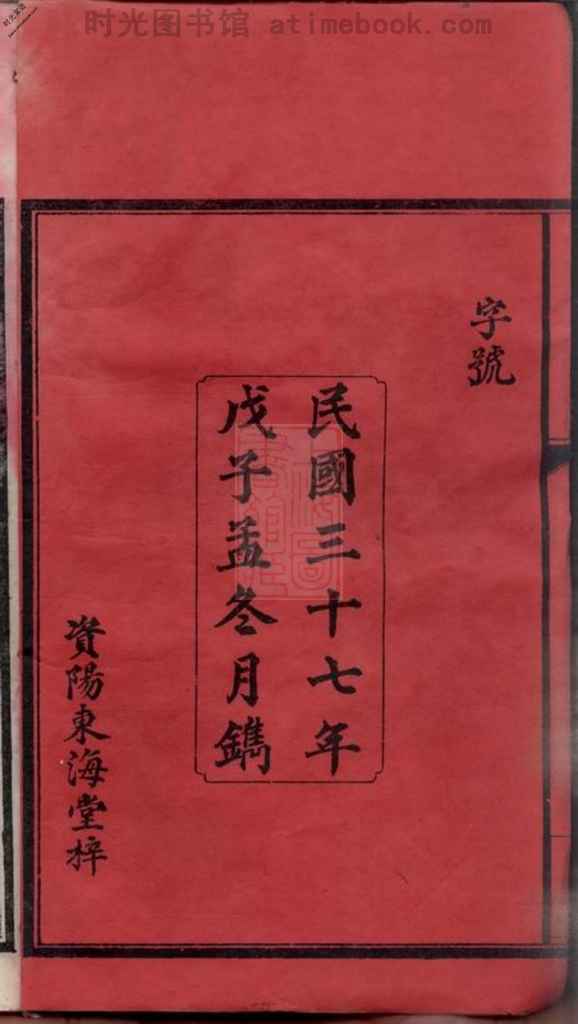 时光图书馆 atimebook.com
字號
民國三十七年
戊子孟冬月鐫
資陽東海堂梓